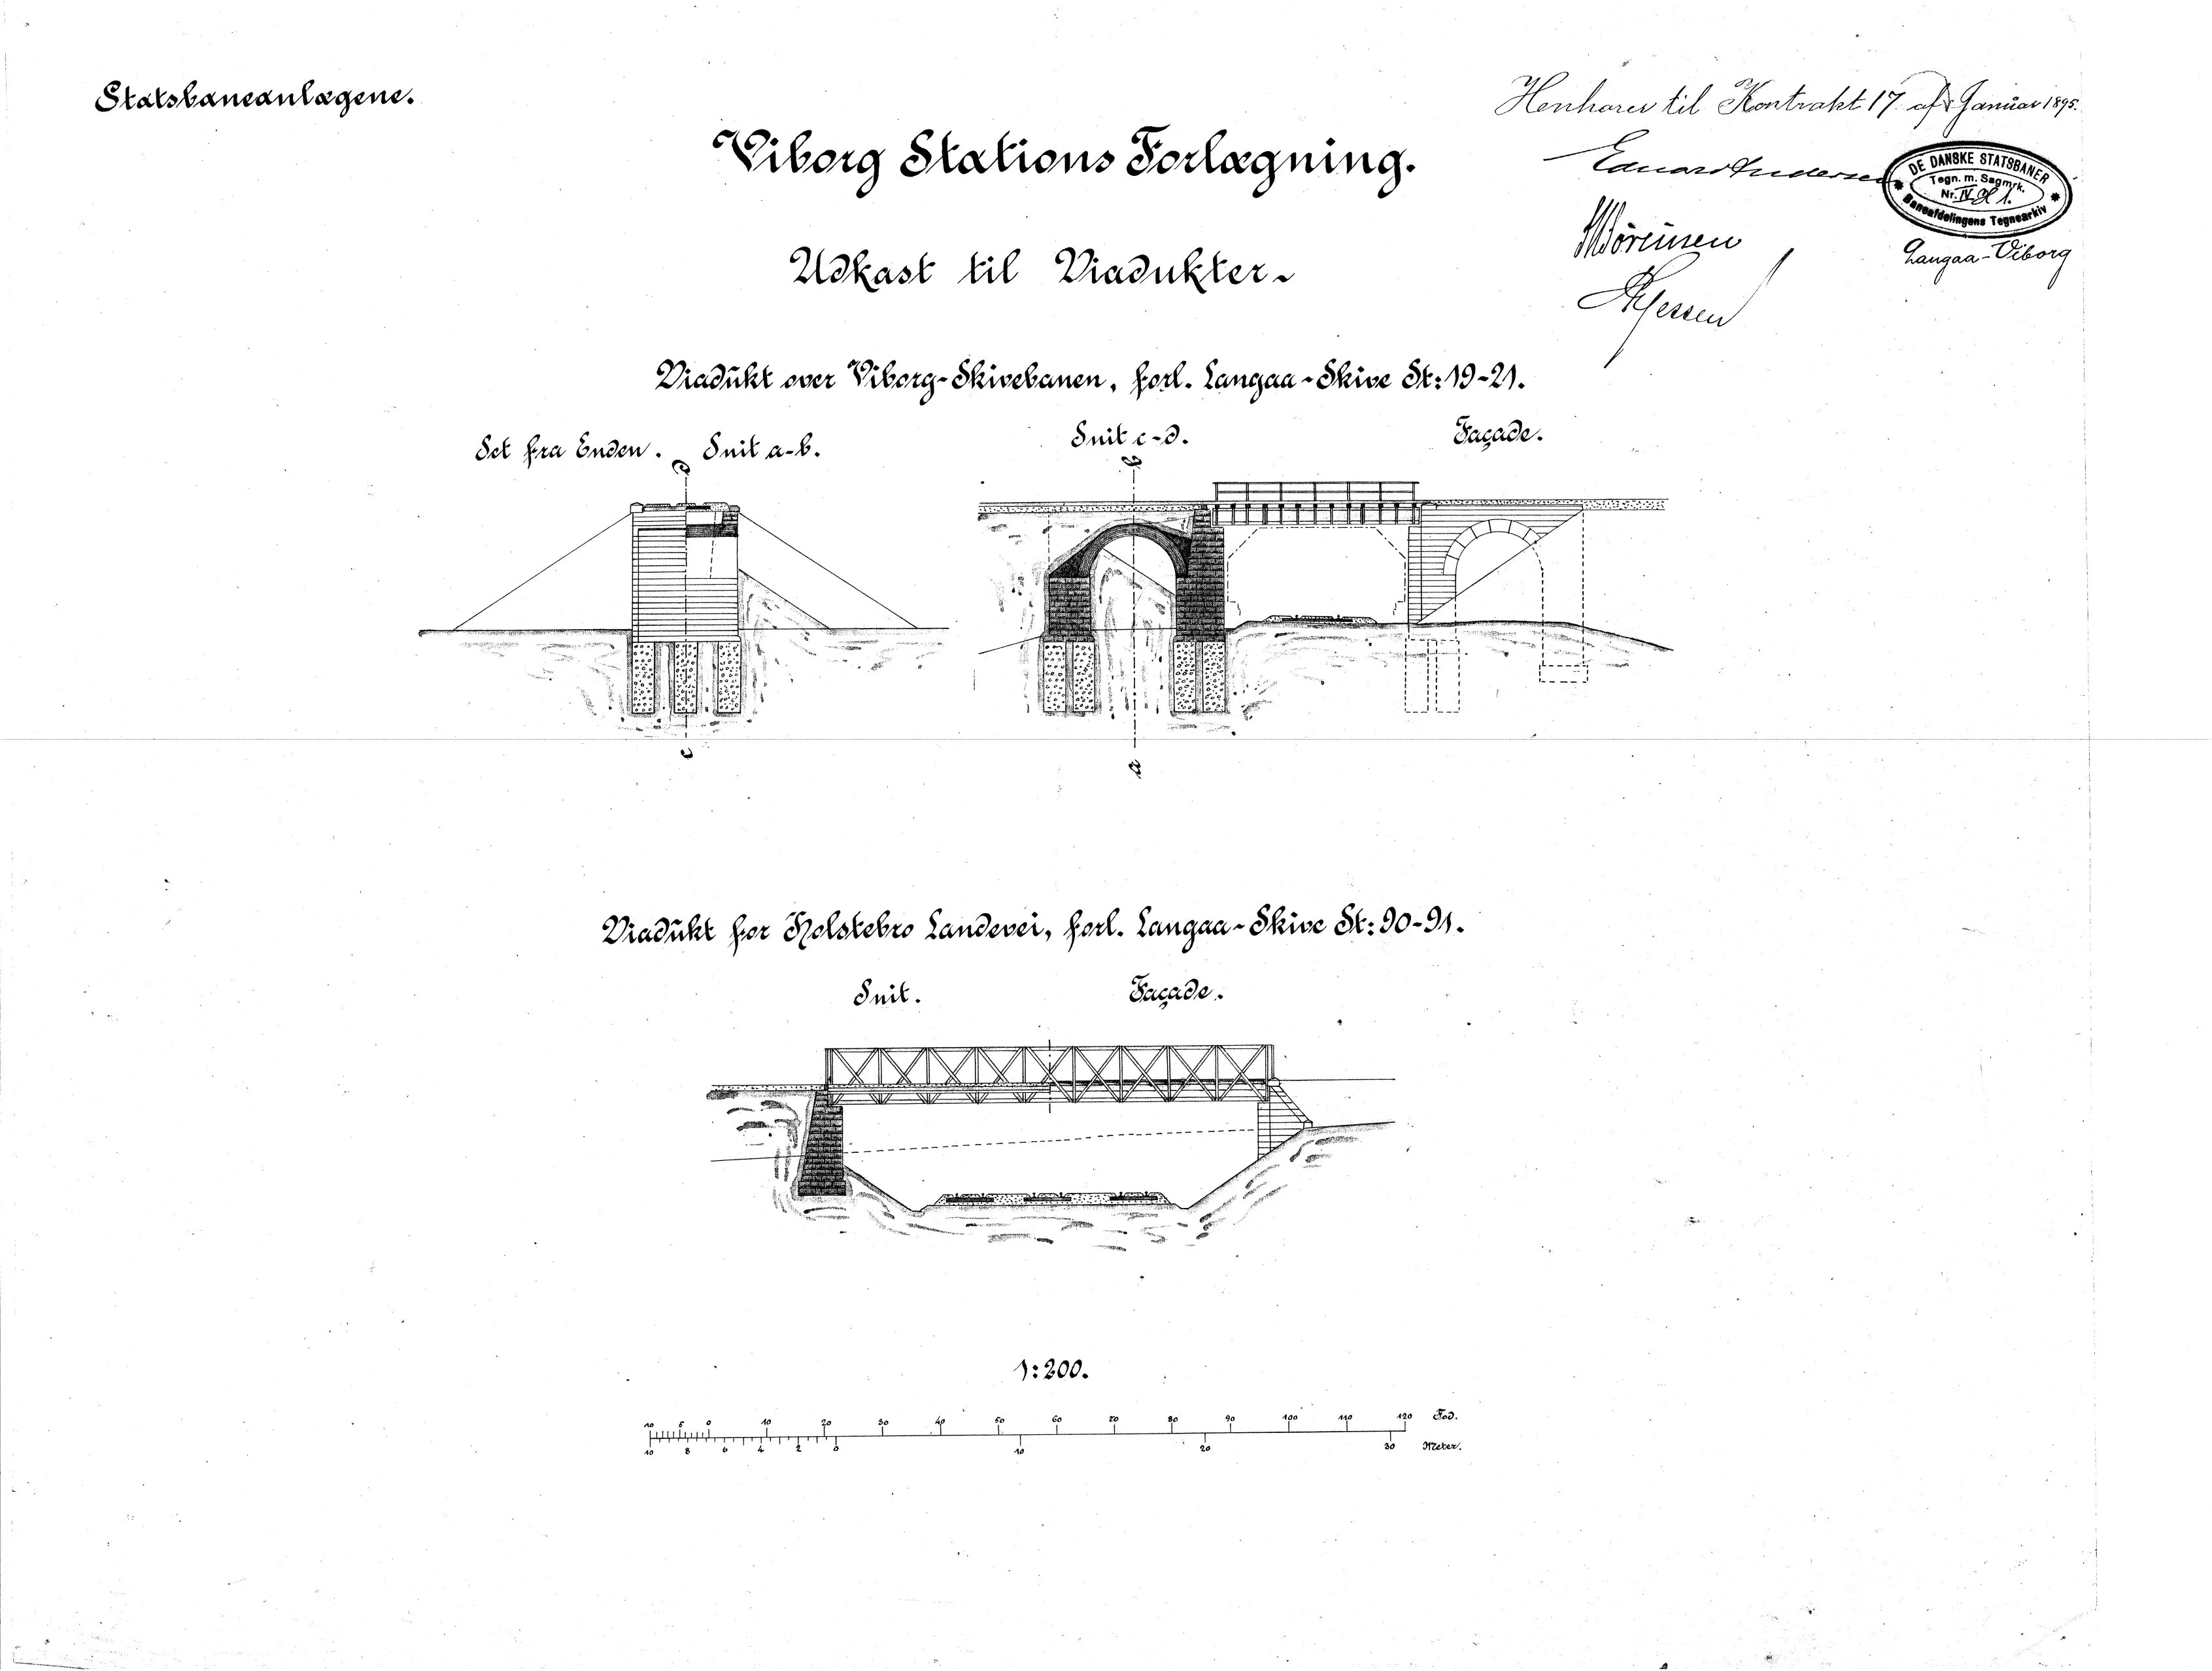 Statsbaneanlægene.
Henhører til Kontrakt 17 af Januar 1895.
Viborg Stations Forlægning.
Eduard Andersen
DE DANSKE STATSBANER
Tegn. m. Sagmrk.
Nr. IV
1.
Baneafdelingens Tegnearkiv
Langaa-Viborg
Sørensen
Udkast til Viadukter~
Jessen
Viadukt over Viborg-Skivebanen, forl. Langaa-Skive St: 19-21.
Set fra Enden. Snit a-b.
Snit c-d.
Façade.
d
b
c
a
Viadukt for Holstebro Landevei, forl. Langaa-Skive St: 90-91.
Snit.
Façade.
1:200.
10 5 0 10 20 30 40 50 60 70 80 90 100 110 120 Fod.
10 8 6 4 2 0 10 20 30 Meter.